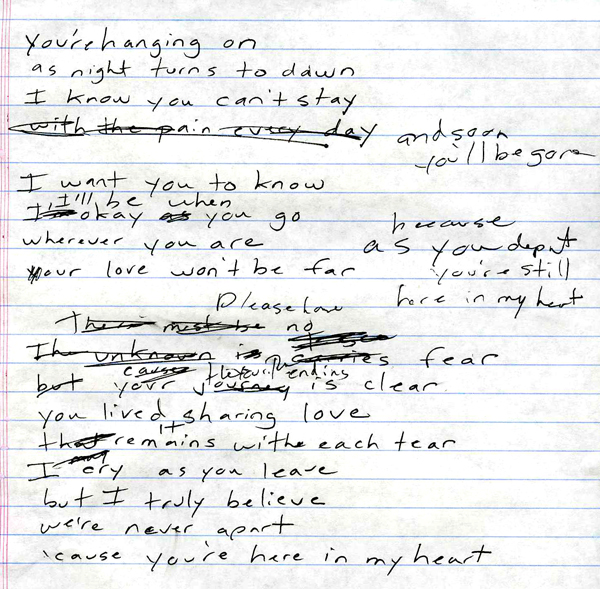 You're hanging on
as night turns to dawn
I know you can't stay
with the pain every day
and soon
you'll be gone
I want you to know
I'll be when
okay as you go
wherever you are
your love won't be far
because
as you depart
you're still
here in my heart
Please have
There must be no
The unknown is fear
cause
but your journey is clear
you lived sharing love
it
that remains withe each tear
I cry as you leave
but I truly believe
we're never apart
'cause you're here in my heart